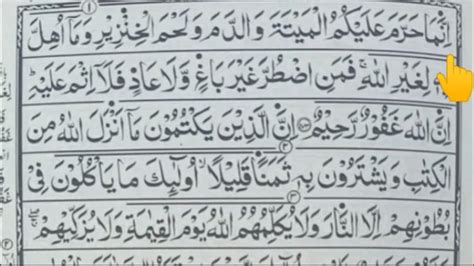 اِنَّمَا حَرَّمَ عَلَيْكُمُ الْمَيْتَةَ وَالدَّمَ وَلَحْمَ الْخِنْزِيْرِ وَمَآ اُهِلَّ
بِهٖ لِغَيْرِ اللّٰهِ ۚ فَمَنِ اضْطُرَّ غَيْرَ بَاغٍ وَّلَا عَادٍ فَلَآ اِثْمَ عَلَيْهِ ؕ
اِنَّ اللّٰهَ غَفُوْرٌ رَّحِيْمٌ ۝۱۷۳ اِنَّ الَّذِيْنَ يَكْتُمُوْنَ مَآ اَنْزَلَ اللّٰهُ مِنَ
الْكِتٰبِ وَيَشْتَرُوْنَ بِهٖ ثَمَنًا قَلِيْلًا ۙ اُولٰٓئِكَ مَا يَاْكُلُوْنَ فِيْ
بُطُوْنِهِمْ اِلَّا النَّارَ وَلَا يُكَلِّمُهُمُ اللّٰهُ يَوْمَ الْقِيٰمَةِ وَلَا يُزَكِّيْهِمْ ۖۚ